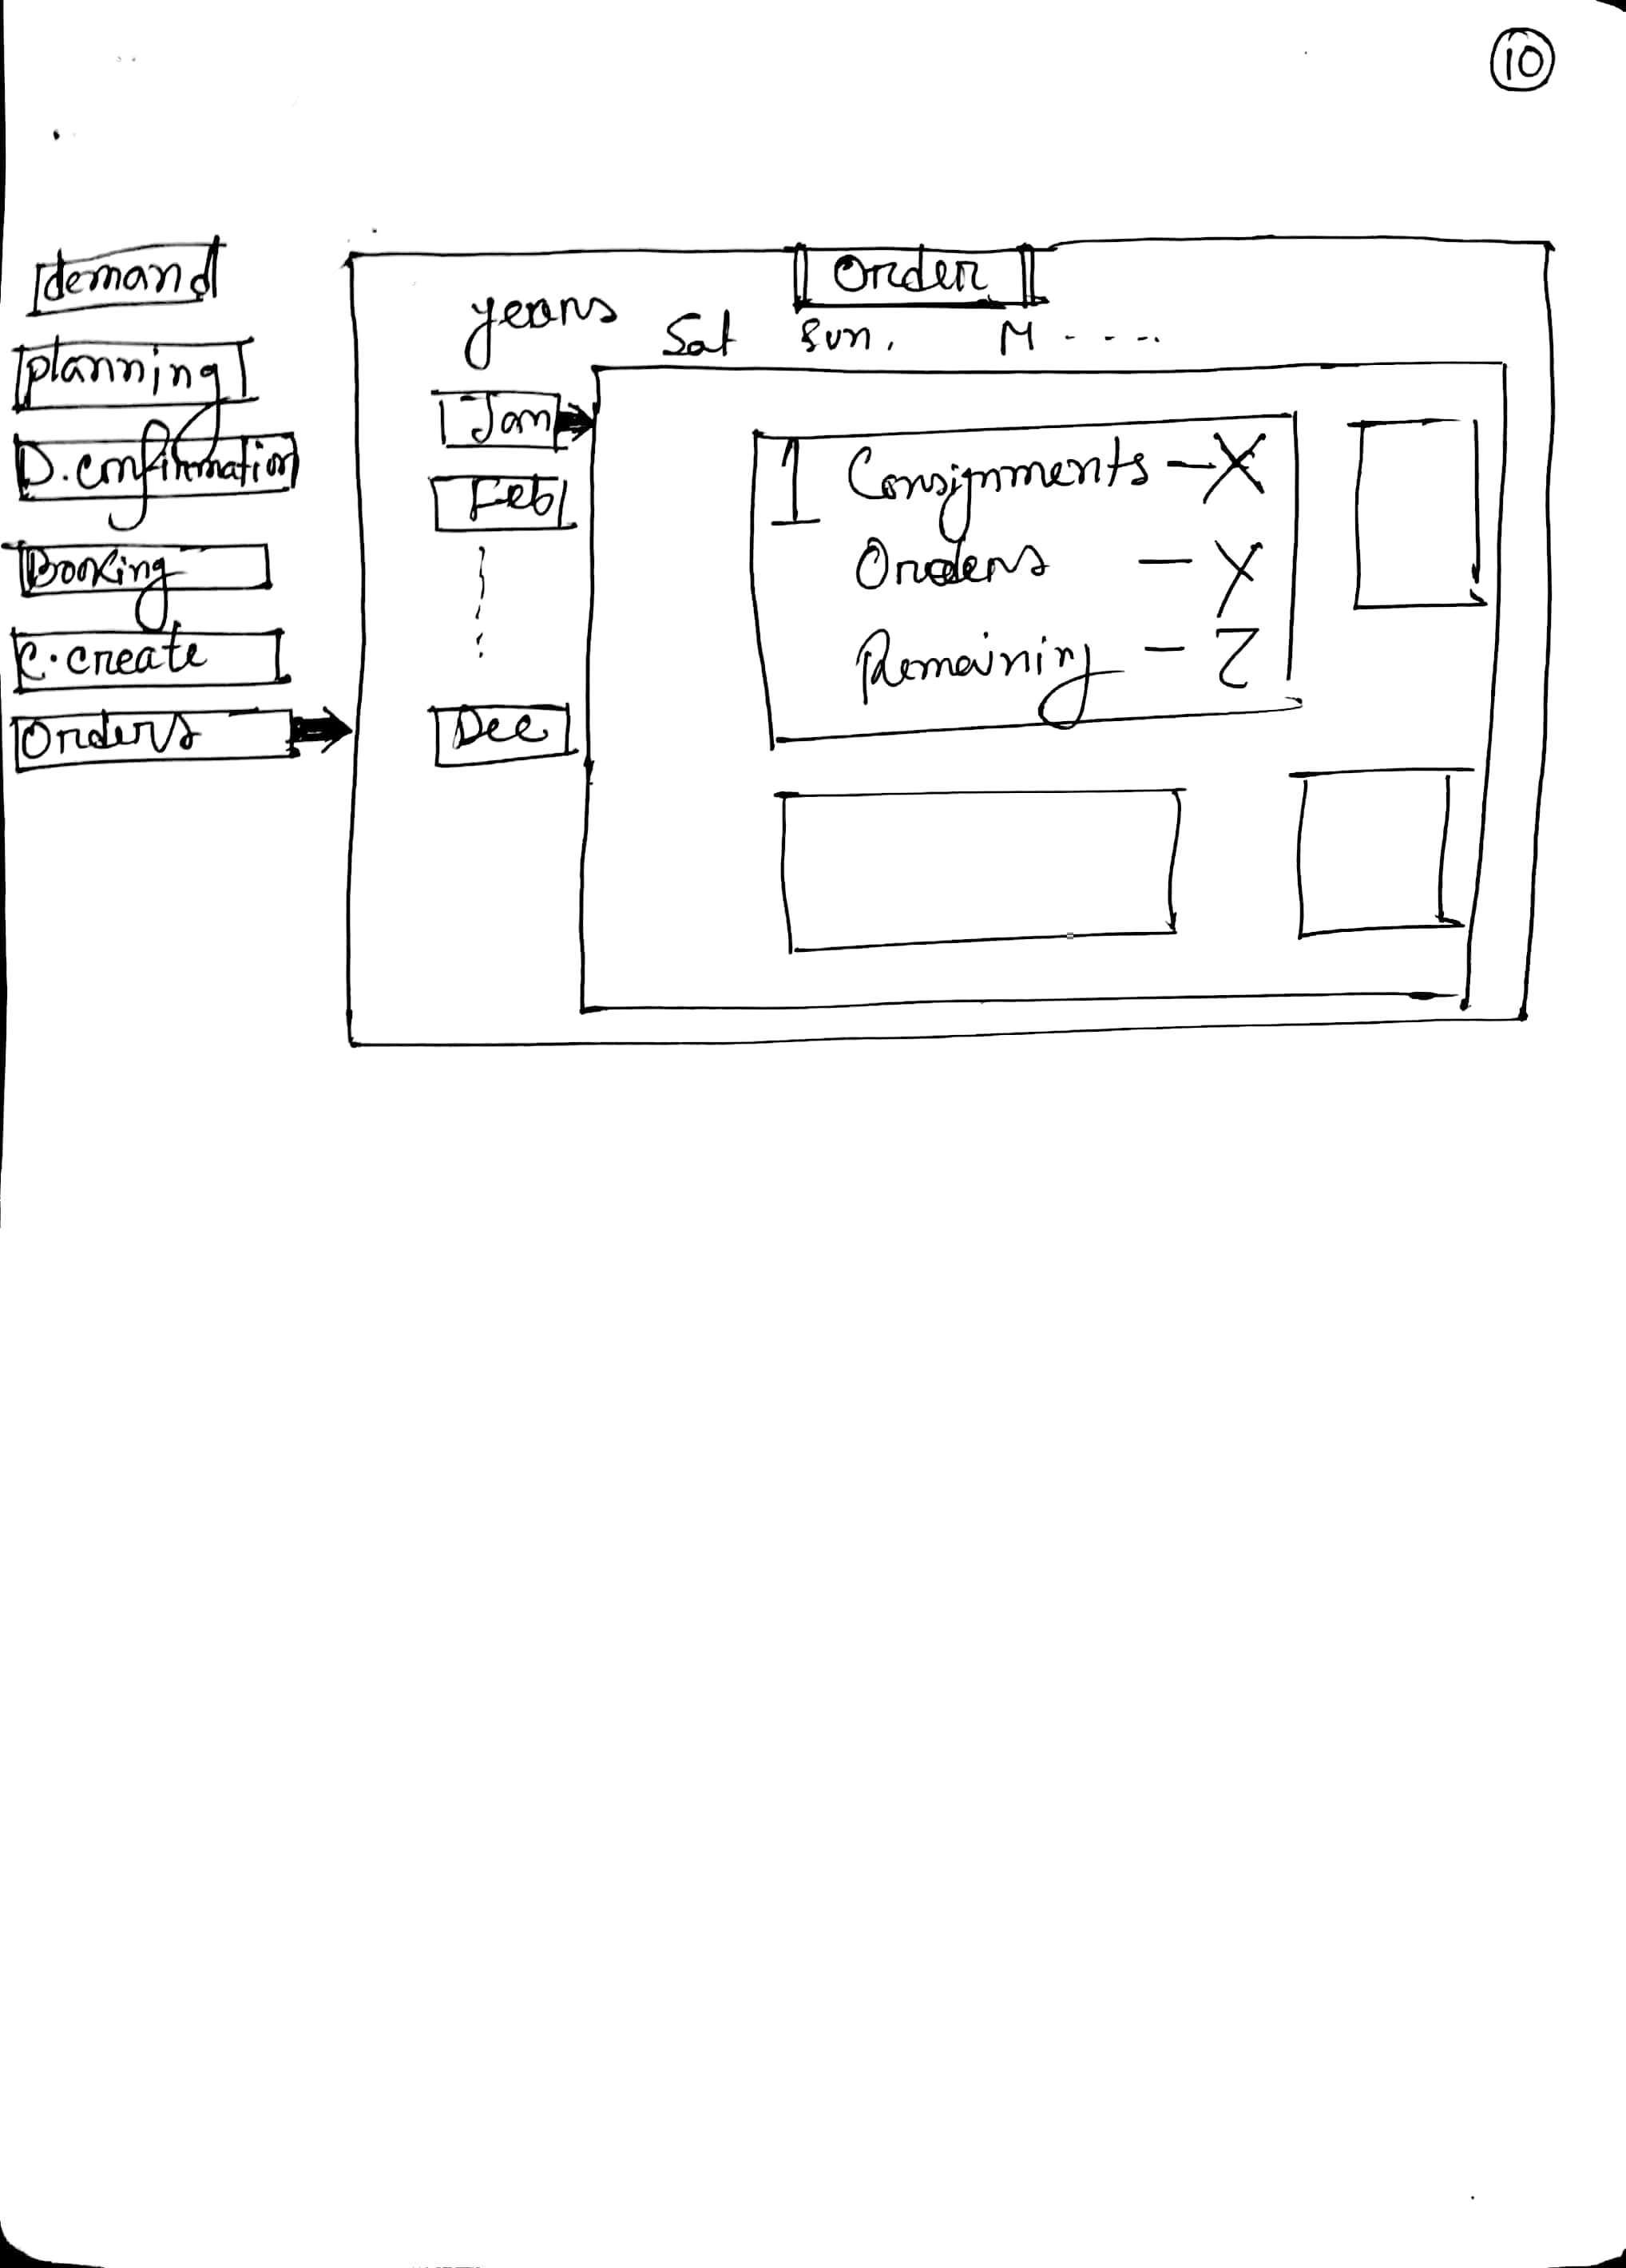 10
demand
planning
D. Confirmation
Booking
C. create
Orders
Order
years
Sat Sun. M .....
Jan
Feb
Dec
1 Consignments - X
Orders - Y
Remaining - Z